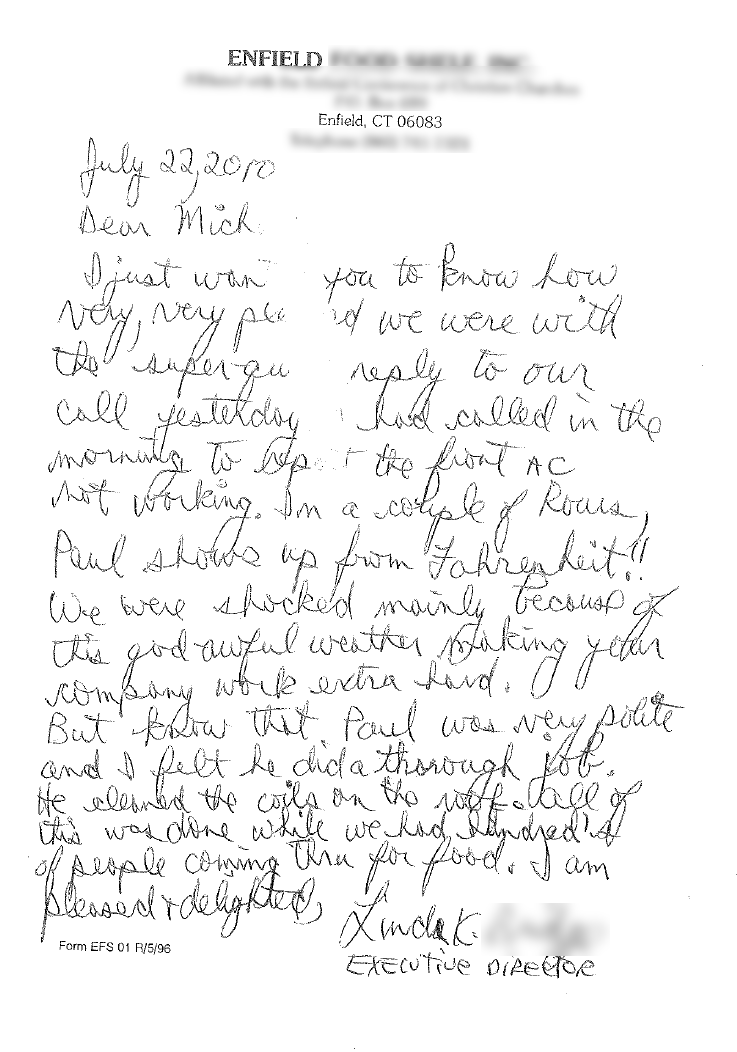 ENFIELD
Enfield, CT 06083
July 22, 2010
Dear Mich
I just wan you to know how
very, very ple d we were with
the super-qu reply to our
call yesterday had called in the
morning to report the front AC
not working. In a couple of hours,
Paul shows up from Fahrenheit!!
We were shocked mainly because of
this god-awful weather making your
company work extra hard.
But know that Paul was very polite
and I felt he did a thorough job.
He cleaned the coils on the roof - all of
this was done while we had hundred's
of people coming thru for food. I am
pleased & delighted,
Linda K.
EXECUTIVE DIRECTOR
Form EFS 01 R/5/96